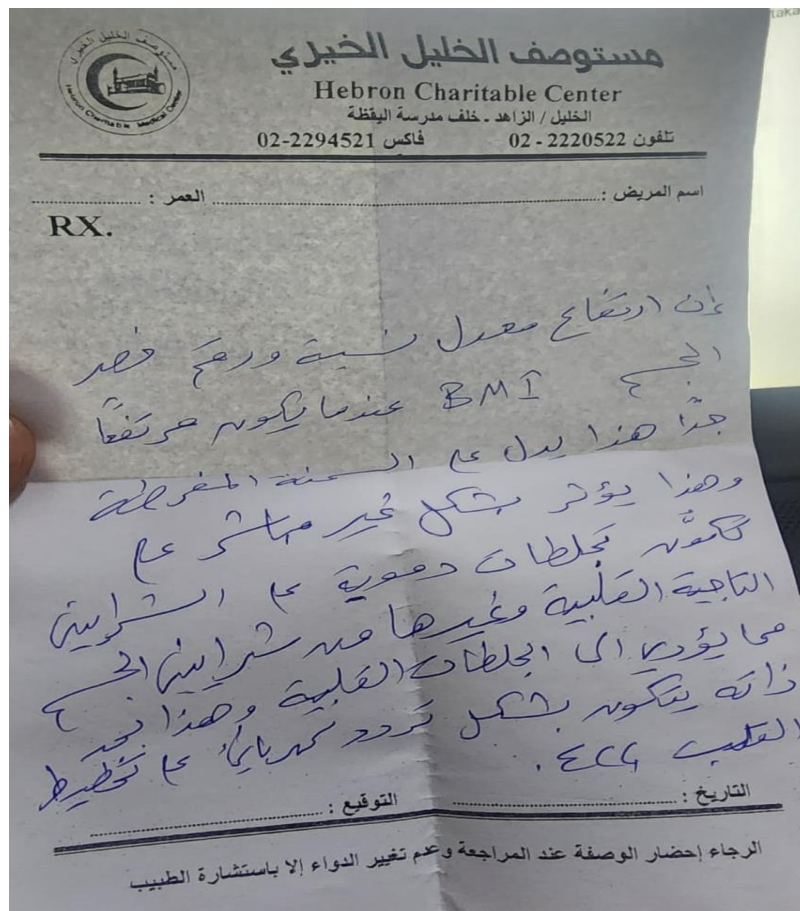 مستوصف الخليل الخيري
Hebron Charitable Center
الخليل / الزاهد - خلف مدرسة اليقظة
تلفون 2220522 - 02 فاكس 2294521-02
مستوصف الخليل الخيري
Hebron Charitable Medical Center
اسم المريض : العمر :
RX.
إن ارتفاع معدل نسبة ورقم
الجسم BMI عندما يكون مرتفعاً
جداً هذا يدل على السمنة المفرطة
وهذا يؤثر بشكل غير مباشر على
تكوّن جلطات دموية على الشرايين
التاجية القلبية وغيرها من شرايين الجسم
مما يؤدي الى الجلطات القلبية وهذا بحد
ذاته يتكون بشكل تردد كهربائي على تخطيط
القلب
التاريخ : التوقيع :
الرجاء إحضار الوصفة عند المراجعة وعدم تغيير الدواء إلا باستشارة الطبيب